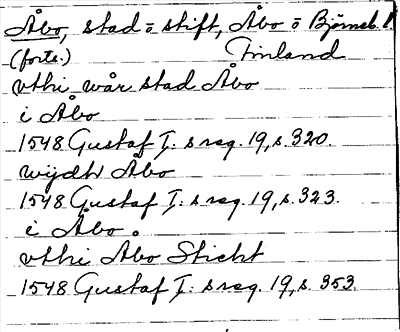 Åbo, stad o stift, Åbo o Björneb. l.
(forts.) Finland
vthi wår stad Åbo
i Åbo
1548 Gustaf I:s reg. 19, s. 320.
wijdh Åbo
1548 Gustaf I:s reg. 19, s. 323.
i Åbo.
vthi Åbo Sticht
1548 Gustaf I:s reg. 19, s. 353.